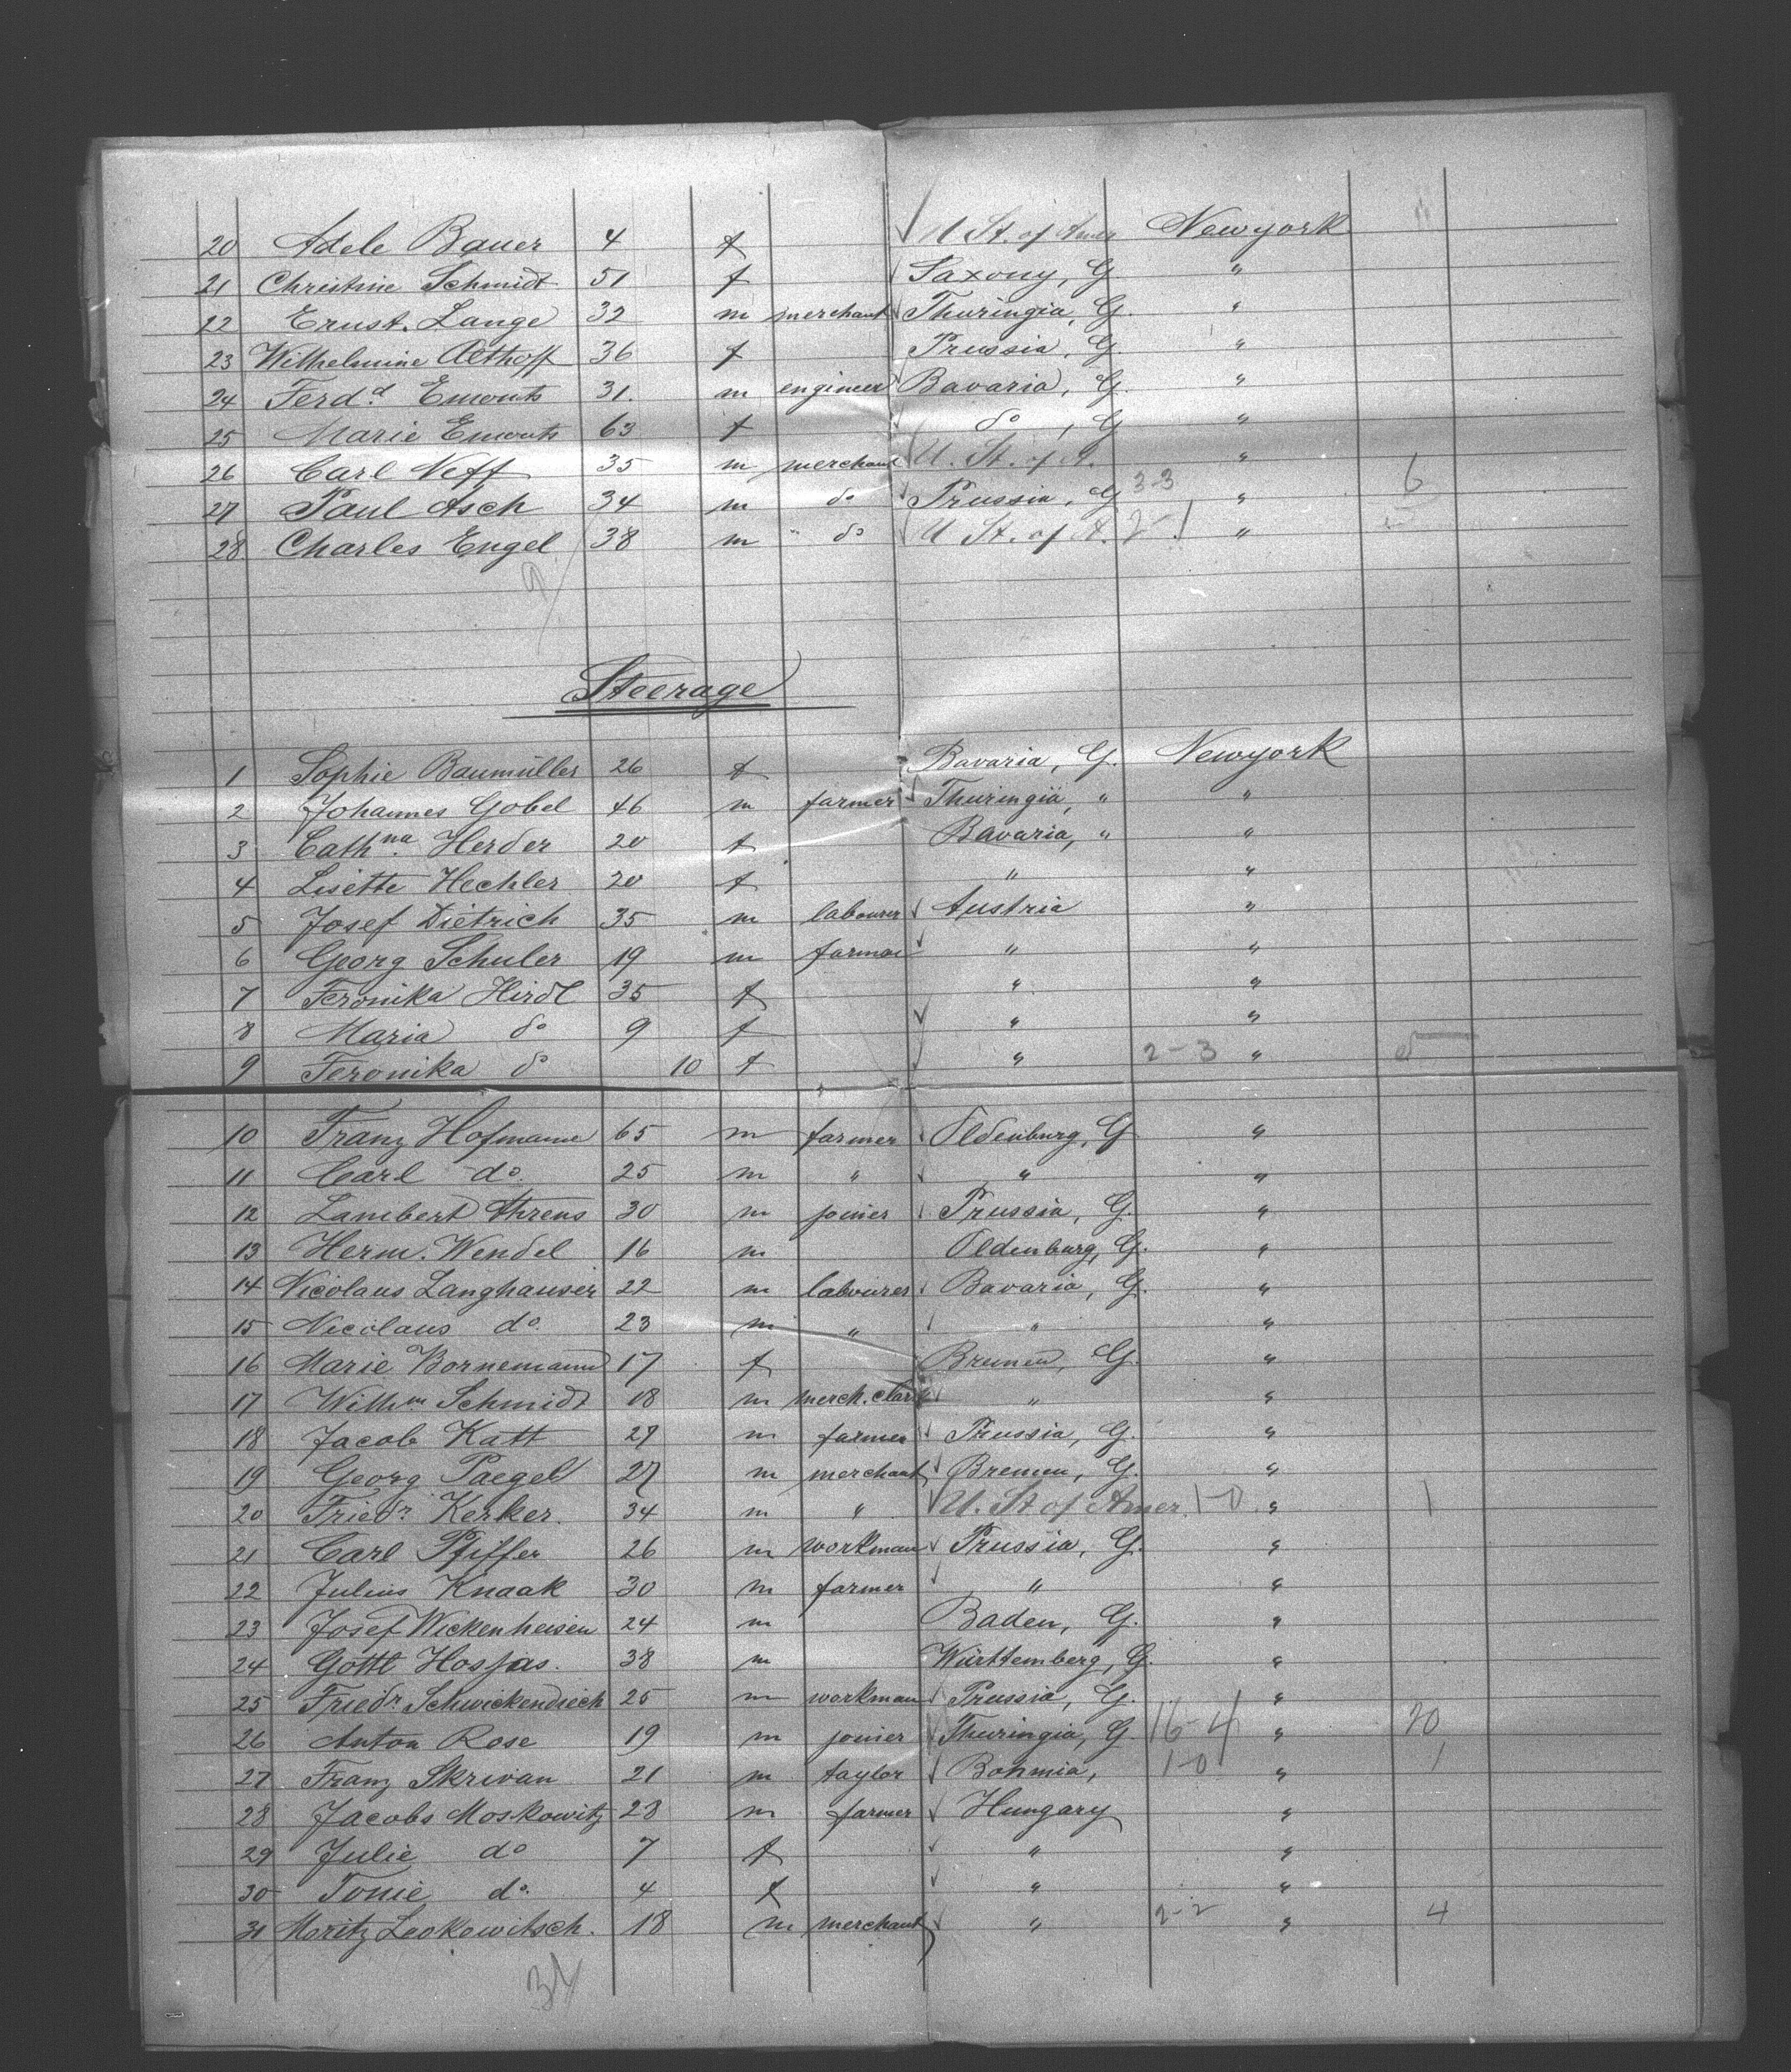 20 Adele Bauer 4 f U St. of Amer Newyork
21 Christine Schmidt 51 f Saxony, G. "
22 Ernst. Lange 32 m merchant Thuringia, G. "
23 Wilhelmine Althoff 36 f Prussia, G. "
24 Ferd.d Emonts 31. m engineer Bavaria, G. "
25 Marie Emonts 63 f do, G "
26 Carl Neff 35 m merchant U. St. of A. "
27 Paul Asch 34 m do Prussia, G 3-3 " 6
28. Charles Engel 38 m " do U St. of A. 2-1 "
9
Steerage
1 Sophie Baumüller 26 f Bavaria, G. Newyork
2 Johannes Gobel 46 m farmer Thuringia, " "
3 Cathna. Herder 20 f Bavaria, " "
4 Lisette Hechler 20 f " "
5 Josef Dietrich 35 m labourer Austria "
6 Georg Schuler 19 m farmer " "
7 Feronika Hirdl 35 f " "
8 Maria do 9 f " "
9 Feronika do 10 f " 2-3 " 5
10 Franz Hofmann 65 m farmer Oldenburg, G "
11 Carl do. 25 m " " "
12 Lambert Ahrens 30 m joiner Prussia, G. "
13 Herm. Wendel 16 m Oldenburg, G. "
14 Nicolaus Langhauser 22 m labourer Bavaria, G. "
15 Nicolaus do. 23 m " " "
16 Marie Bornemann 17 f Bremen, G. "
17 Wilhm Schmidt 18 m merch. clark " "
18 Jacob Katt 27 m farmer Prussia, G. "
19 Georg Paegel 27 m merchant Bremen, G. "
20 Friedr. Kerker. 34 m " U. St of Amer. 1-0 " 1
21 Carl Pfiffer 26 m workman Prussia, G. "
22 Julius Knaak 30 m farmer " "
23 Josef Wickenheisen 24 m Baden, G. "
24 Gottl Hosjas. 38 m Württemberg, G. "
25 Friedr. Schwickendiech 25 m workman Prussia, G. "
26 Anton Rose 19 m joiner Thuringia, G. 16-4 " 20
27 Franz Skrivan 21 m taylor Bohmia, 1-0 " 1
28 Jacobs Moskowitz 28 m farmer Hungary "
29 Julie do 7 f " "
30 Tonie do. 4 f " "
31 Moritz Leokowitsch. 18 m merchant " 2-2 " 4
31